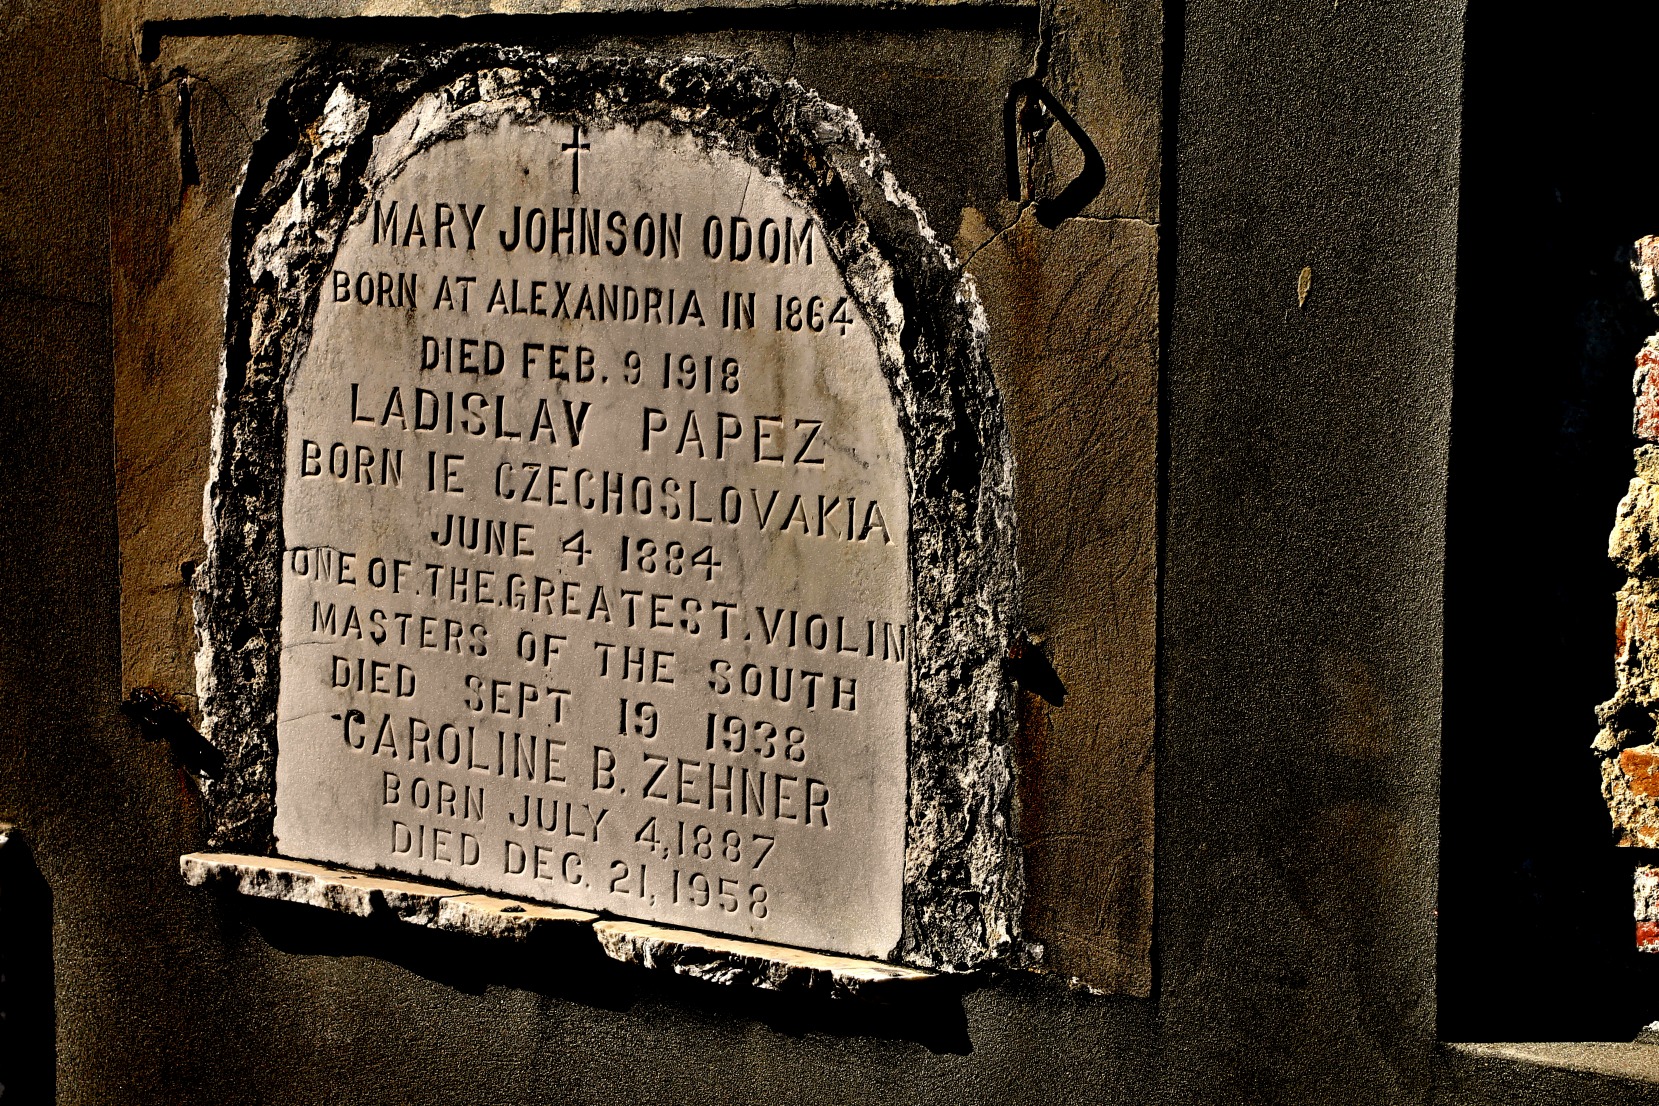 MARY JOHNSON ODOM
BORN AT ALEXANDRIA IN 1864
DIED FEB. 9 1918
LADISLAV PAPEZ
BORN IE CZECHOSLOVAKIA
JUNE 4 1884
ONE OF.THE.GREATEST.VIOLIN
MASTERS OF THE SOUTH
DIED SEPT 19 1938
CAROLINE B. ZEHNER
BORN JULY 4, 1887
DIED DEC. 21, 1958